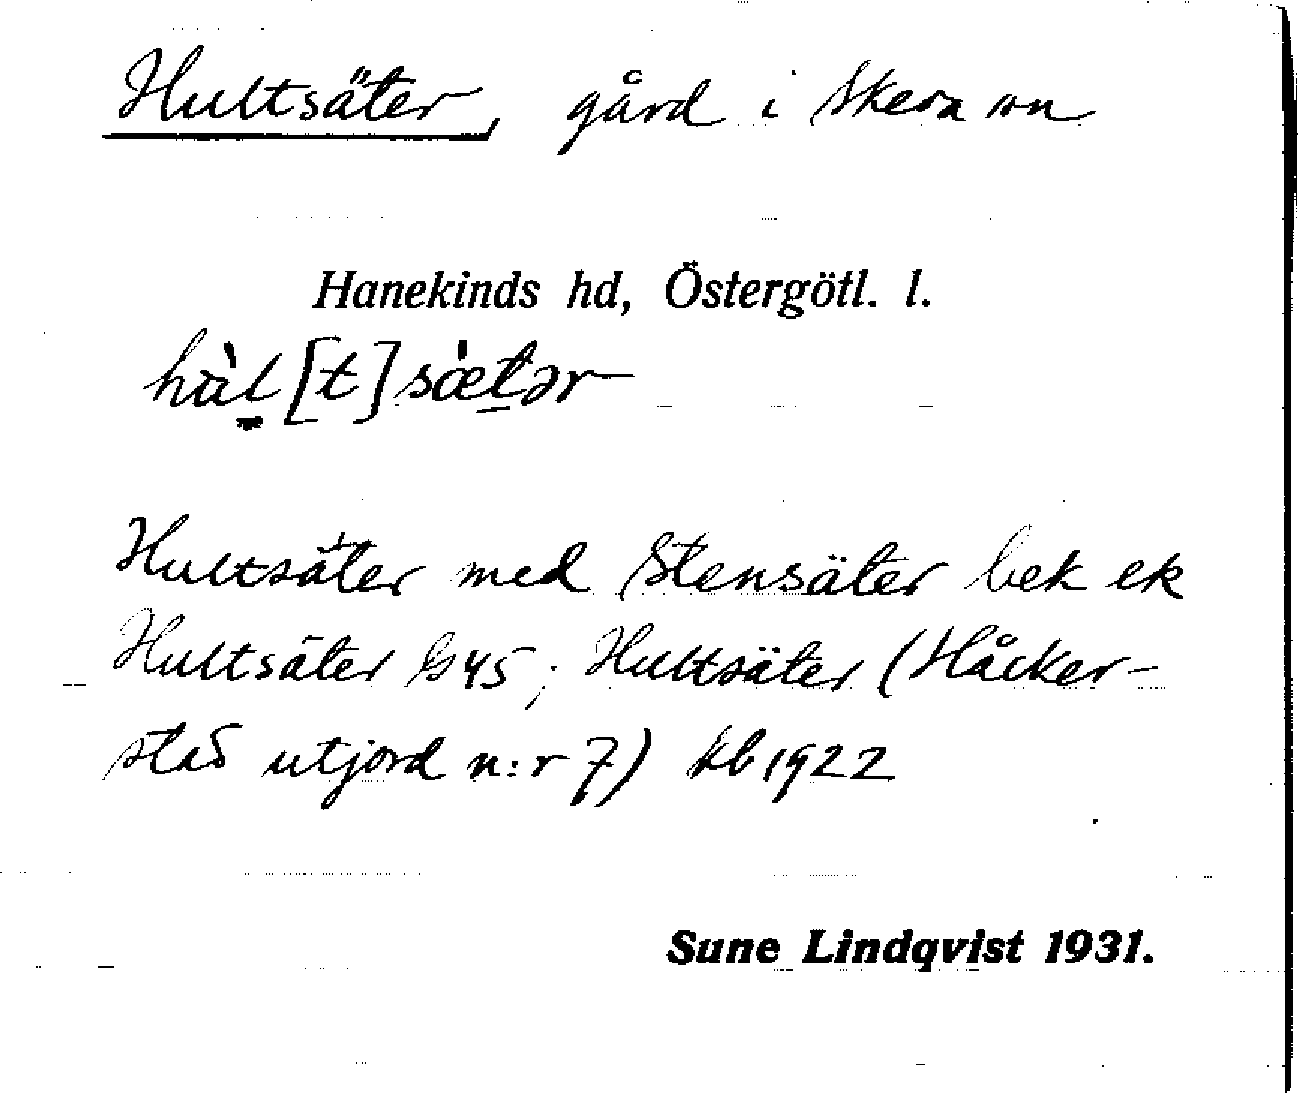 Hultsäter, gård i Skeda sn
Hanekinds hd, Östergötl. l.
hàl[t]sæ̀tər
Hultsäter med Stensäter bek ek
Hultsäter G 45; Hultsäter (Håcker-
stad utjord n:r 7) kb 1922
Sune Lindqvist 1931.